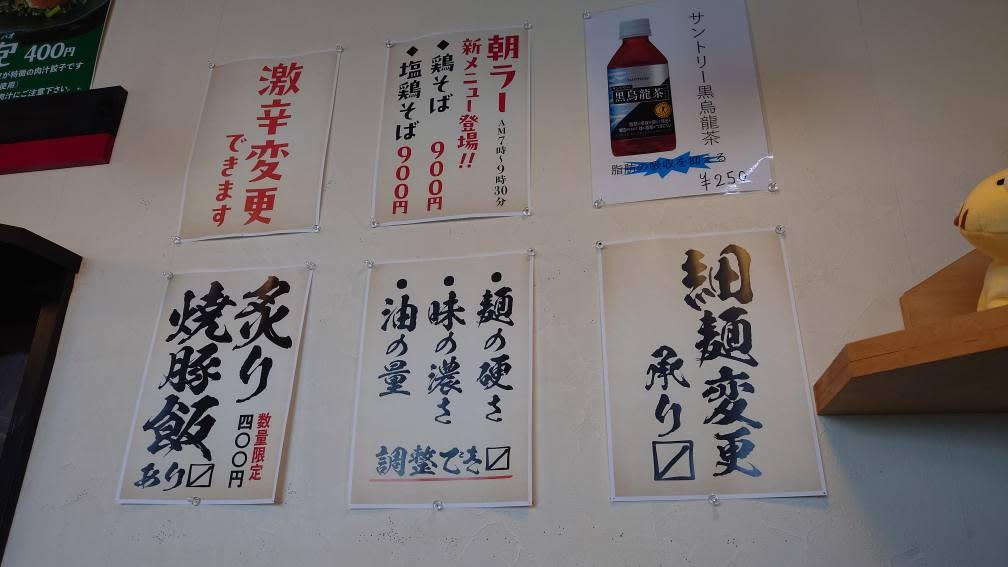 400円
が特徴の肉汁餃子です
使用)
肉汁にご注意下さい。
激辛変更
できます
朝ラー AM7時~9時30分
新メニュー登場!!
◆鶏そば 900円
◆塩鶏そば 900円
サントリー黒烏龍茶
黒烏龍茶
脂肪の吸収を抑える
¥250
炙り
焼豚飯
あり〼
数量限定
四〇〇円
●麺の硬さ
●味の濃さ
●油の量
調整でき〼
細麺変更
承り〼